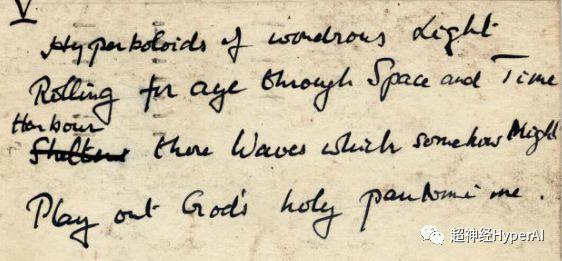 V
Hyperboloids of wondrous Light
Rolling for aye through Space and Time
Harbour
Shelter those Waves which somehow Might
Play out God's holy pantomime.
超神经HyperAI